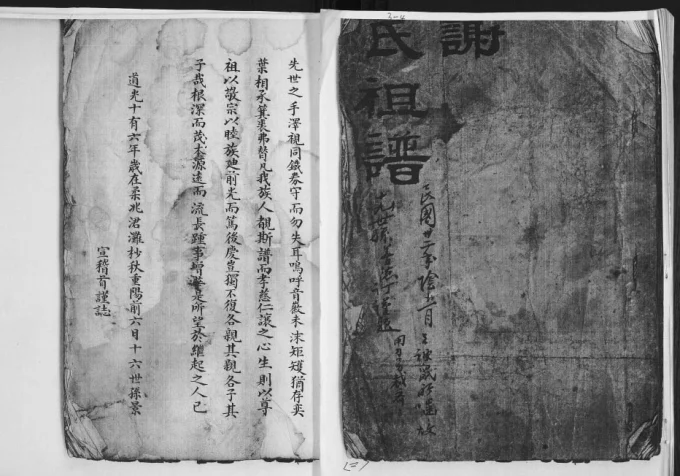 謝
氏祖譜
民國廿二年陰十二月
先世之手澤視同鐵券守而勿失耳嗚呼音歡未沫矩矱猶存奕
葉相承箕裘弗替凡我族人覩斯譜而孝慈仁讓之心生則以尊
祖以敬宗以睦族延前光而篤後慶豈獨不復各親其親各子其
子哉根深而茂末源遠而流長踵事增華是所望於繼起之人已
道光十有六年歲在柔兆涒灘杪秋重陽前六日十六世孫景
宣稽首謹誌